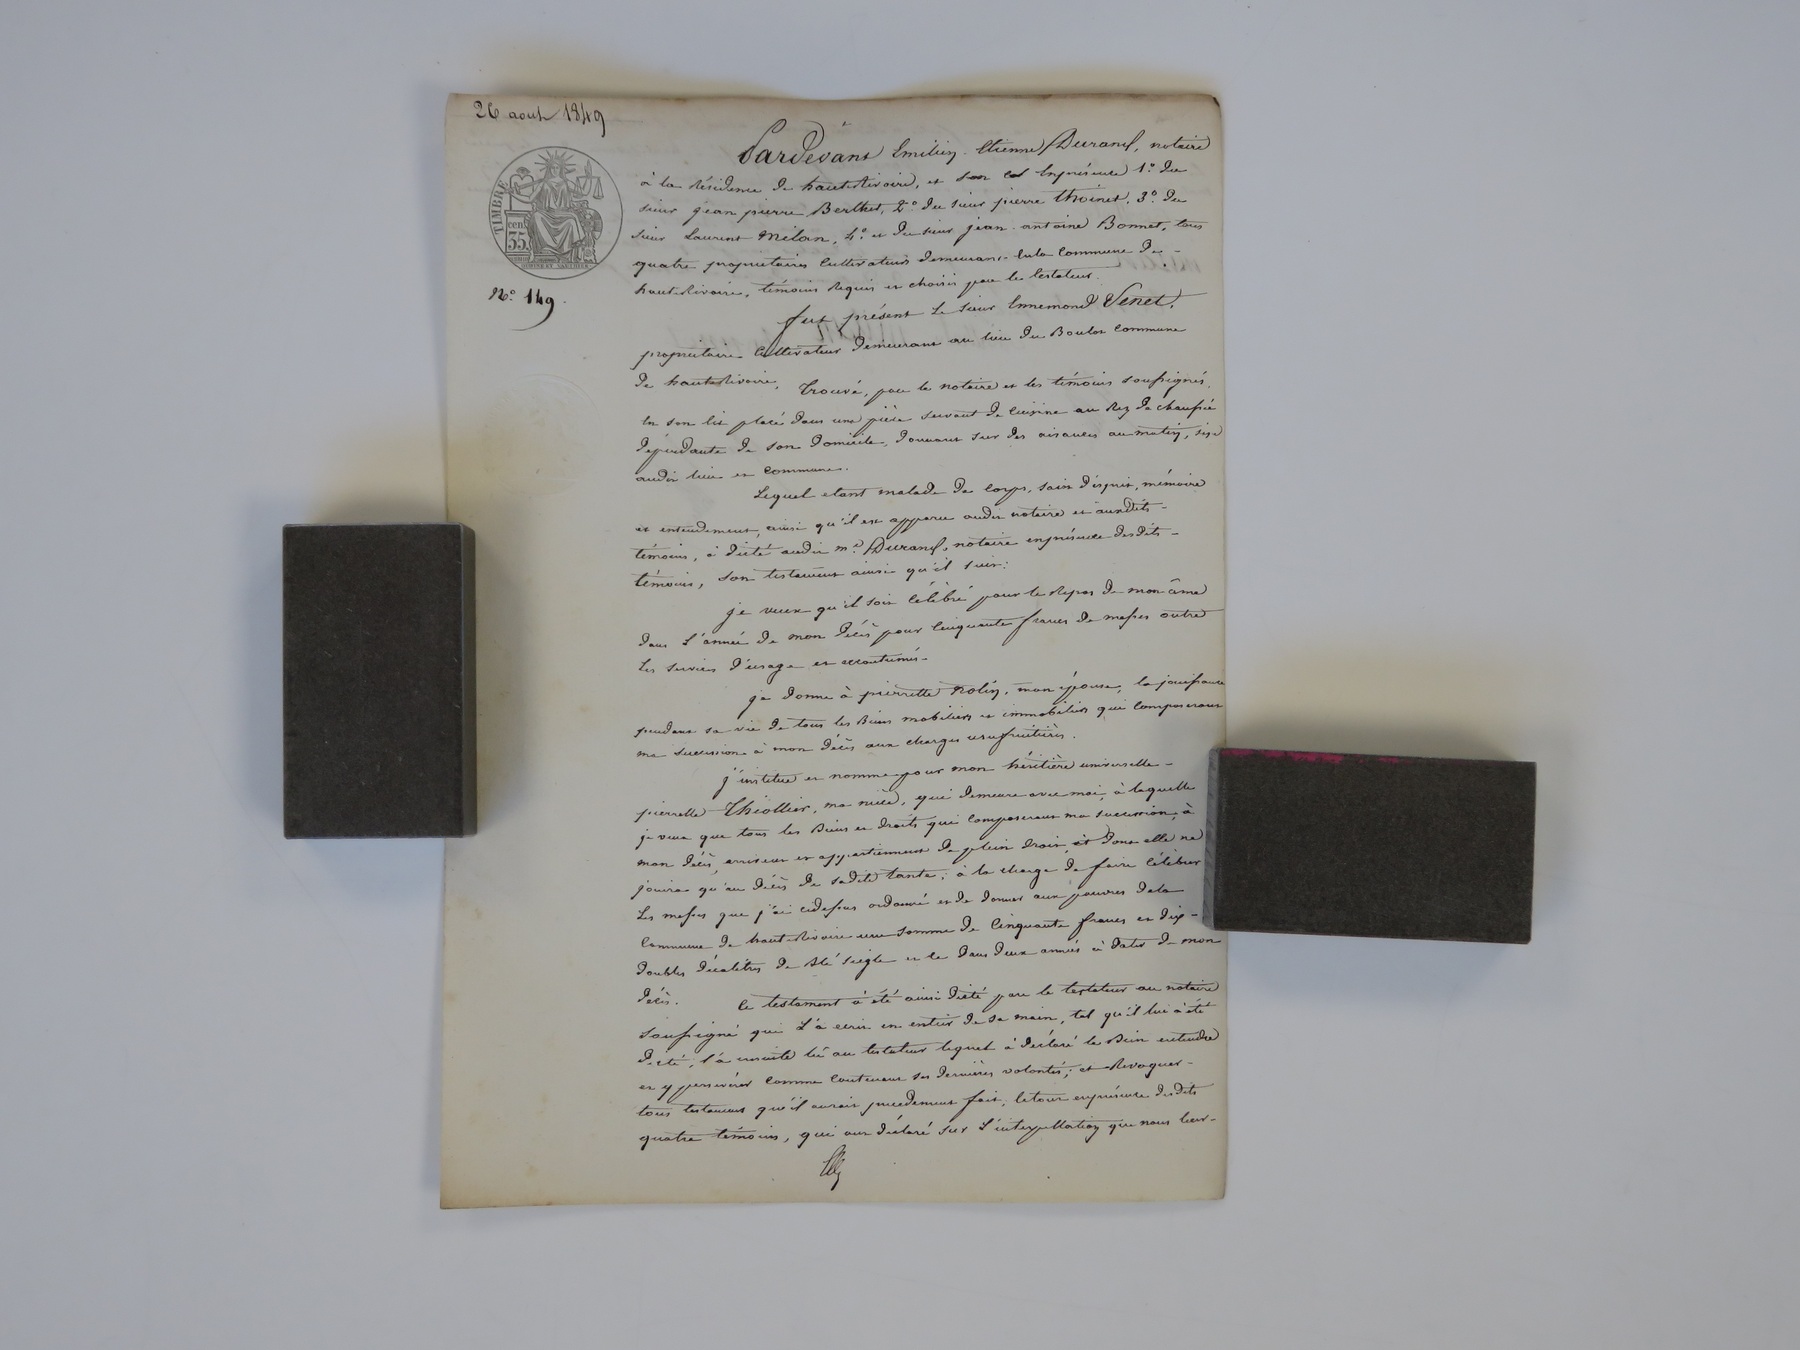 26 aout 1849
TIMBRE
cen.
35
N.º 149.
Pardevant Emilien Etienne Durand, notaire
à la Résidence de hauterivoire, et Enprésence 1.º du
sieur jean pierre Berthet, 2.º du sieur pierre Thoinet, 3.º du
sieur Laurent Milan, 4.º et du sieur jean antoine Bonnet, tous
quatre propriétaires Cultivateurs demeurans Enla Commune de
hauterivoire, témoins Requis et choisis par le testateur.
fut présent le sieur Ennemond Venet,
propriétaire Cultivateur demeurant au lieu du Boulot Commune
de hauterivoire, Trouvé, par le notaire et les témoins soussignés
En son lit placé dans une pièce servant de Cuisine au Rez de chaussée
dépendante de son domicile, donnant sur des aisances au matin, sise
audit lieu et Commune.
Lequel etant malade de Corps, sain d'esprit, mémoire
et entendement, ainsi qu'il est apparu audit notaire et auxdits
témoins, à dicté audit m.e Durand, notaire enprésence desdits
témoins, son testament ainsi qu'il suit:
je veux qu'il soit Célébré pour le Repos de mon âme
dans L'année de mon décès pour Cinquante francs de messes outre
Les services d'usage et accoutumés.
je donne à pierrette Nolin, mon épouse, la jouissance
pendant sa vie de tous les Biens mobiliers et immobiliers qui Composeront
ma succession à mon décès aux charges usufruitières.
j'institue et nomme pour mon héritière universelle
pierrette Thiollier, ma nièce, qui demeure avec moi, à laquelle
je veux que tous les Biens et droits qui Composeront ma succession, à
mon décès, arrivent et appartiennent de plein droit, et dont elle ne
jouira qu'au décès de sadite tante; à la charge de faire Célébrer
Les messes que j'ai cidessus ordonné et de donner aux pauvres dela
Commune de hauterivoire une somme de Cinquante francs et dix
doubles décalitres de Blé seigle et ce dans deux années à dater de mon
décès. Ce testament à été ainsi dicté par le testateur au notaire
soussigné qui L'à ecrit en entier de sa main, tel qu'il lui à été
dicté; l'à ensuite lu au testateur lequel à déclaré le Bien entendre
et y persévérer Comme Contenant ses dernières volontés; et Revoquer
tous testamens qu'il aurait précédement fait, letout enprésence desdits
quatre témoins, qui ont déclaré sur L'interpellation que nous leur